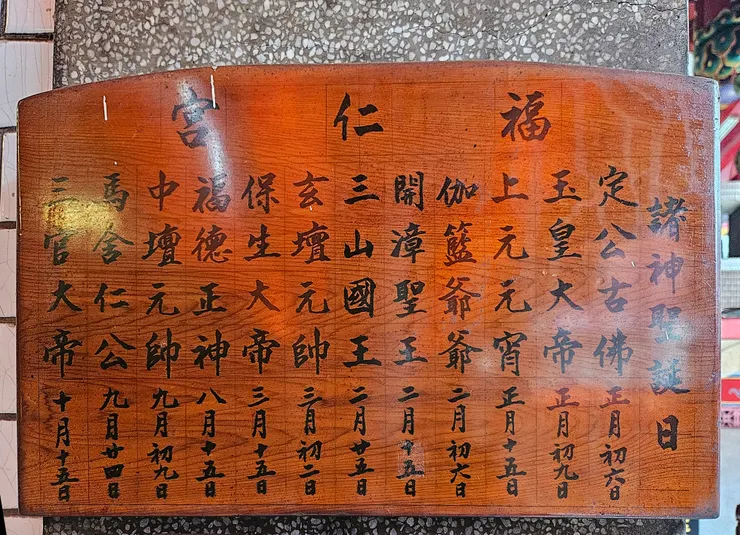 福仁宮
諸神聖誕日
定公古佛正月初六日
玉皇大帝正月初九日
上元元宵正月十五日
伽籃爺爺二月初六日
開漳聖王二月十五日
三山國王二月廿五日
玄壇元帥三月初二日
保生大帝三月十五日
福德正神八月十五日
中壇元帥九月初九日
馬舍仁公九月廿四日
三官大帝十月十五日